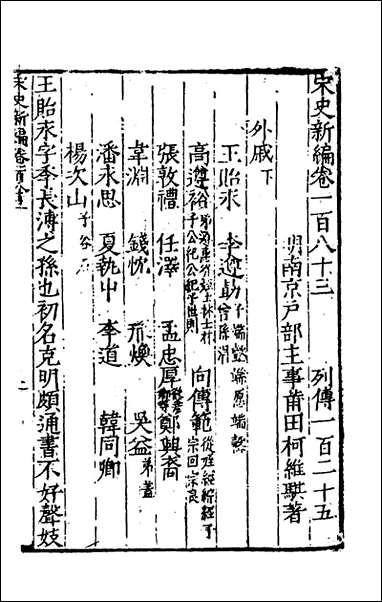 宋史新編卷一百八十三　列傳一百二十五
明南京戶部主事莆田柯維騏著
外戚下
王貽永　李遵勗子端懿 端愿 端慤 曾孫評
高遵裕弟遵惠 從姪士林 士林子公紀 公紀子世則　向傳範從姪經 綜 經子宗回 宗良
張敦禮　任澤　孟忠厚　鄭興裔
韋淵　錢忱　邢煥　吳益弟蓋
潘永思　夏執中　李道　韓同卿
楊次山子谷 石
王貽永字季長溥之孫也初名克明頗通書不好聲妓
宋史新編卷一百八十三
一